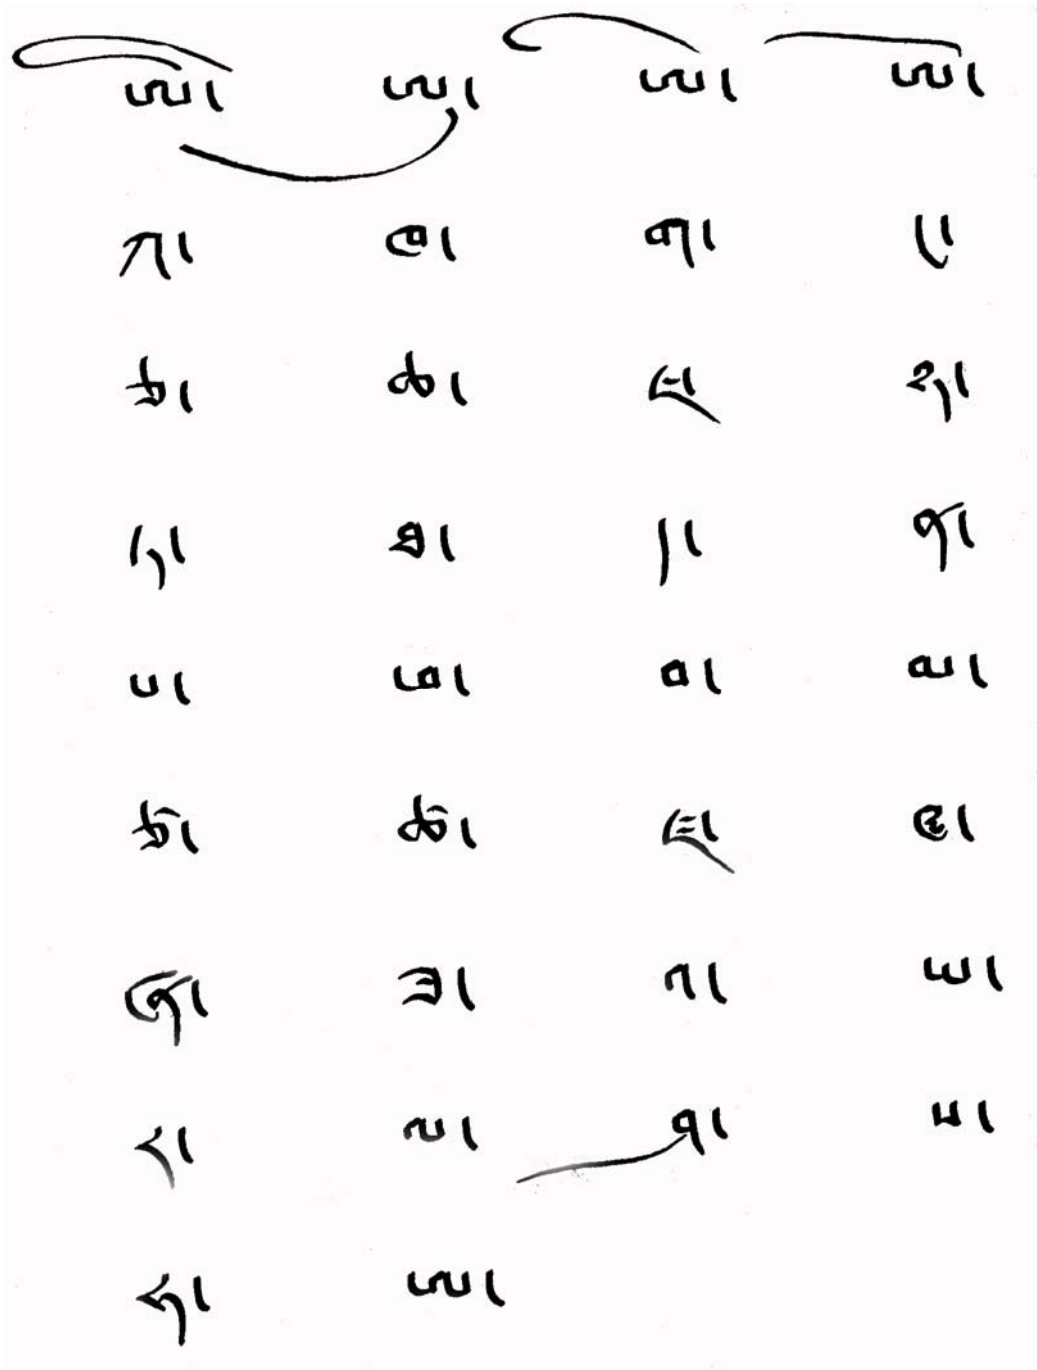 ཨི། ཨུ། ཨེ། ཨོ།
ཀ། ཁ། ག། ང།
ཅ། ཆ། ཇ། ཉ།
ཏ། ཐ། ད། ན།
པ། ཕ། བ། མ།
ཙ། ཚ། ཛ། ཝ།
ཞ། ཟ། འ། ཡ།
ར། ལ། ཤ། ས།
ཧ། ཨ།